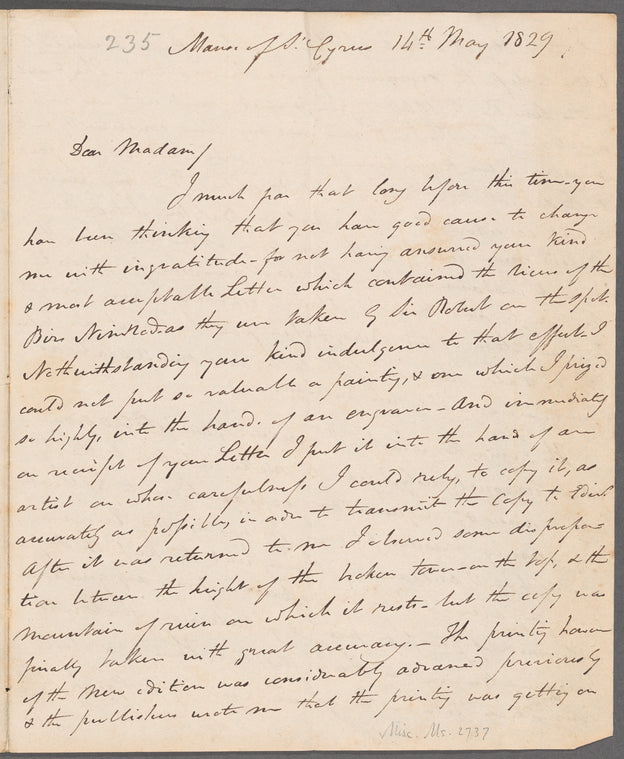 235 Manse of St Cyrus 14th May 1829
Dear Madam/
I much fear that long before this time you
have been thinking that you have good cause to charge
me with ingratitude - for not having answered your kind
& most acceptable Letter which contained the views of the
Birs Nimrod as they were taken by Sir Robert on the spot.
Notwithstanding your kind indulgence to that effect - I
could not put so valuable a painting, & one which I prized
so highly, into the hands of an engraver - And immediately
on receipt of your Letter I put it into the hand of an
artist on whose carefulness I could rely, to copy it, as
accurately as possible, in order to transmit the copy to Edinr
After it was returned to me I observed some dispropor=
tion between the height of the broken tower - on the top, & the
mountain of ruin on which it rests - but the copy was
finally taken with great accuracy. - The printing however
of the New edition was considerably advanced previously
& the publishers wrote me that the printing was getting on
Misc. Ms. 2737